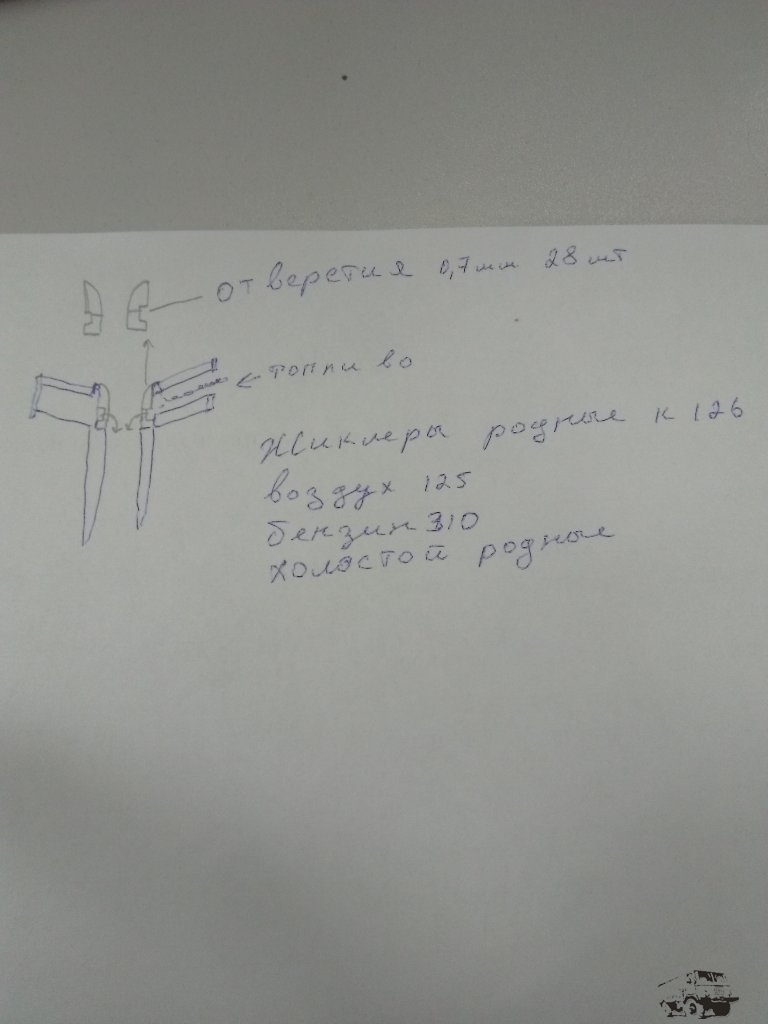 отверстия 0,7мм 28шт
топливо
Жиклеры родные к 126
воздух 125
бензин 310
холостой родные